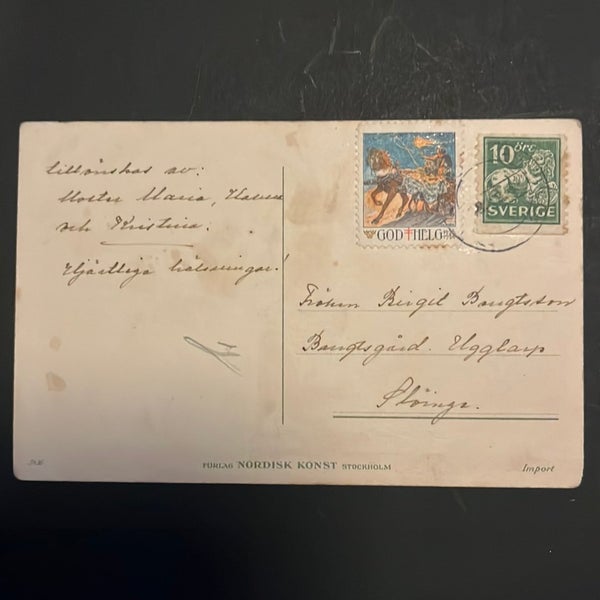 tillönskas av:
Moster Maria,
och Kristina.
Hjärtliga hälsningar!
GOD HELG
10 öre
SVERIGE
Fröken Birgit Bengtsson
Bengtsgård. Ugglarp
Slöinge.
FÖRLAG NORDISK KONST STOCKHOLM
Import